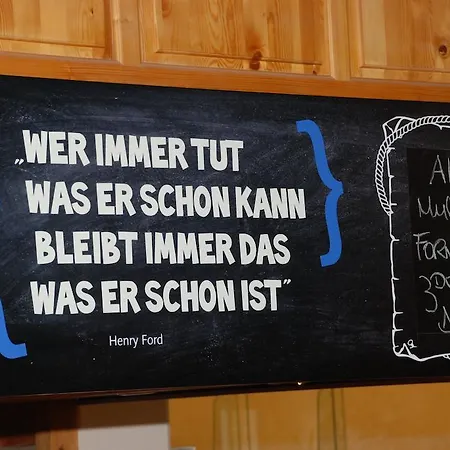 „WER IMMER TUT
WAS ER SCHON KANN
BLEIBT IMMER DAS
WAS ER SCHON IST"
Henry Ford